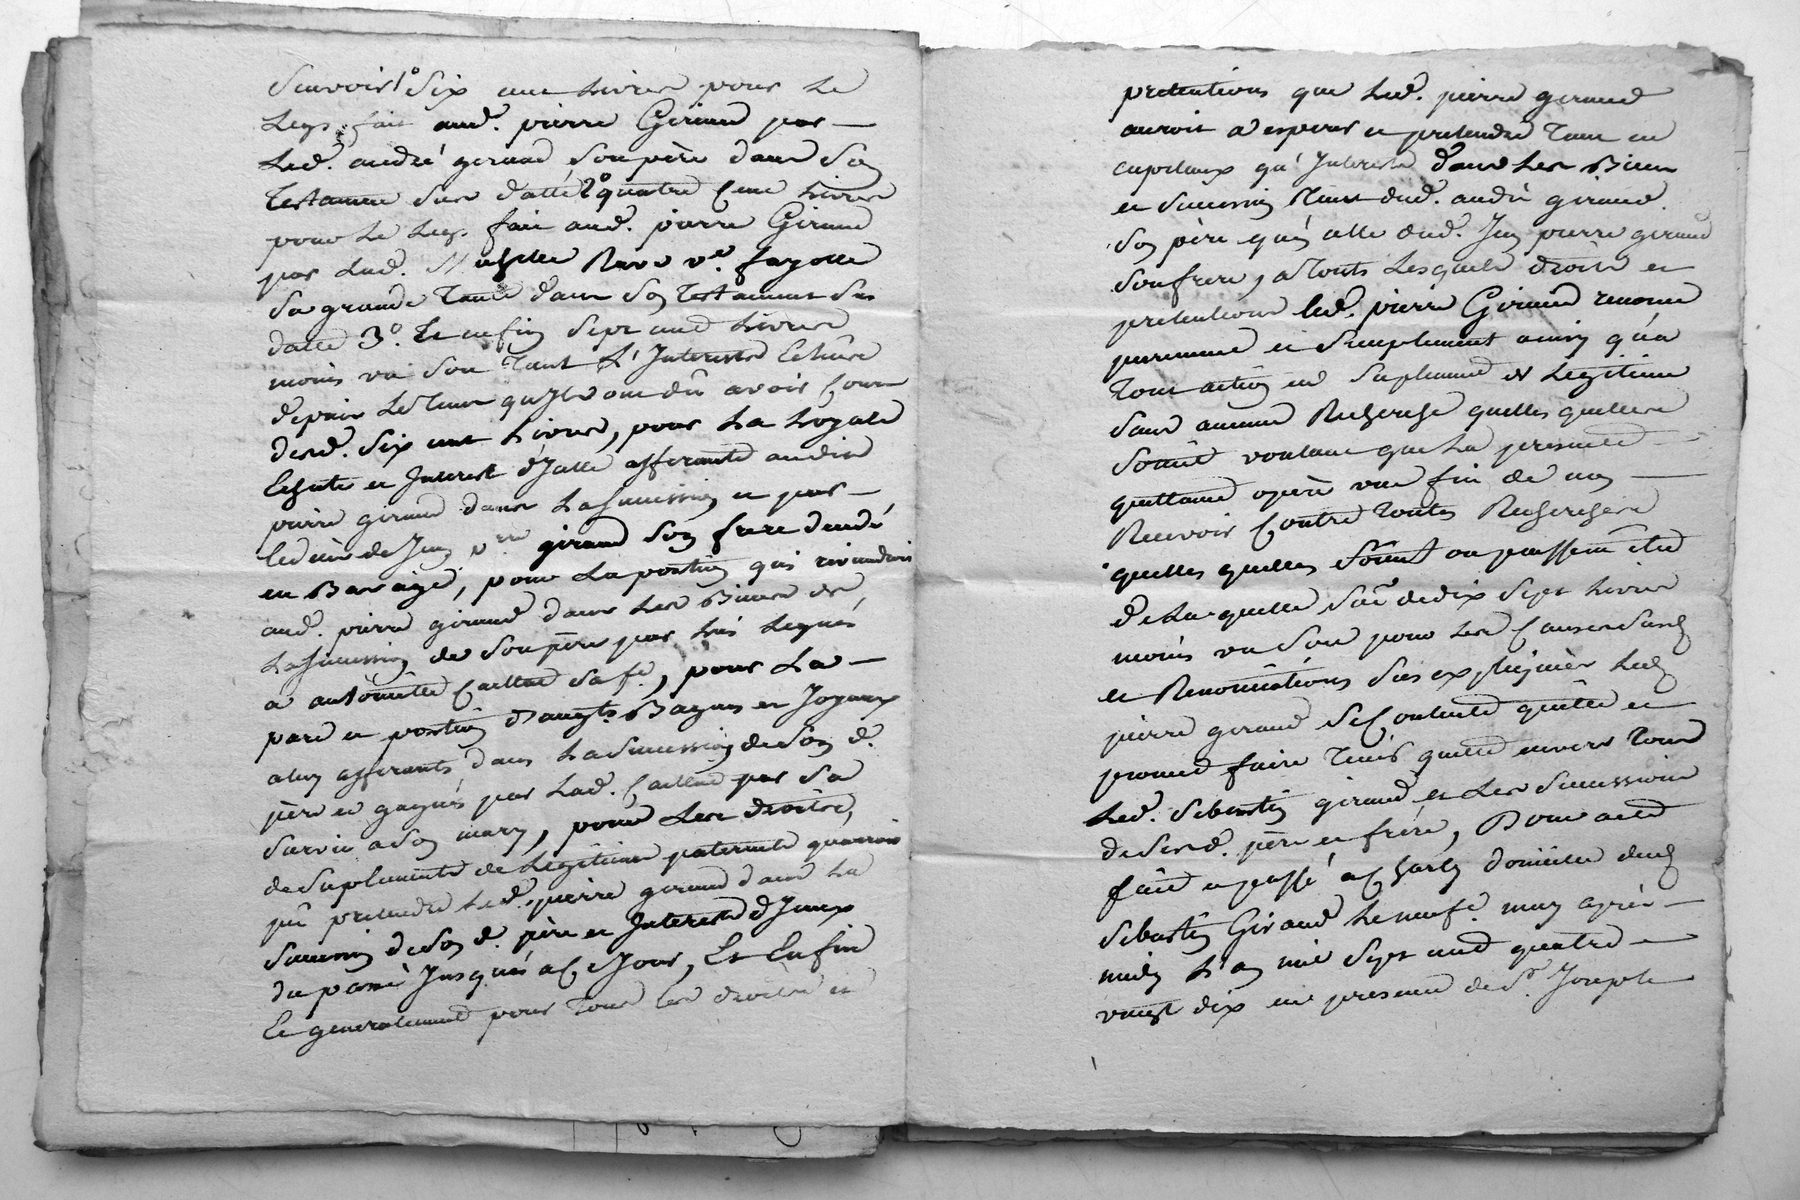 Scavoir 1° Six cent Livres pour Le
Legs fait aud. pierre Giraud par
Led. andré giraud Son père dans Son
Testament Sus datté 2° quatre Cent Livres
pour Le Legs fait aud. pierre Giraud
par Lad. v.e fayolle
Sa grande Tante dans Son Testament Sus
datté 3°. Et enfin Sept cent Livres
moins un Sou Tant L'Interests Echûs
depuis Le Tems qu'Ils ont dû avoir Cours
desd. Six cent Livres, pour La
Echute et Interest d'Icelle afferante audit
pierre giraud dans La Succession et par
le deces de Jean p.re giraud Son frere decedé
en Bas aige, pour La portion qui reviendroit
aud. pierre giraud dans Les Biens de
La Succession de Son père par Lui Legués
a antoinette Caillat Sa fe., pour La
part et portion d'augt. Bagues et Joyaux
a luy afferants dans La Succession de Son d.
père et gagnés par Lad. Caillat par Sa
Survie a Son mary, pour Les Droits,
de Suplements de Legitime paternelle qu'auroit
pû pretendre Led. pierre giraud dans La
Succession de Son d. père et Interests d'Iceux
du passé Jusques a Ce Jour, Et Enfin
Et generalement pour Tous Les droits et
pretentions que Led. pierre giraud
auroit a esperer et pretendre Tant en
capitaux qu'Interests dans Les Biens
et Succession dud. andré giraud
Son père qu'en celle dud. Jean pierre giraud
Son frere, a Touts Lesquels droits et
pretentions led. pierre Giraud renonce
purement et Simplement ainsy qu'a
Tout action en Suplement de Legitime
Sans aucune Recherche quelles quelles
Soint voulant que La presente
quittance opere une fin de non
Recevoir Contre Toutes Recherches
quelles quelles Soint ou puissent être
de Laquelle de dix Sept Livres
moins un Sou pour Les Causes Susd.
et Renonciations Sus expliquées Led.
pierre giraud Se Contente quitte et
promet faire Tenir quitte envers Tous
Led. Sebastien giraud et Les Successions
de Sesd. père et frère, Dont acte
fait et passé a Charly domicile dud.
Sebastien Giraud Le neuf may après
midy L'an mil Sept cent quatre
vingt dix en presence de S.r Joseph